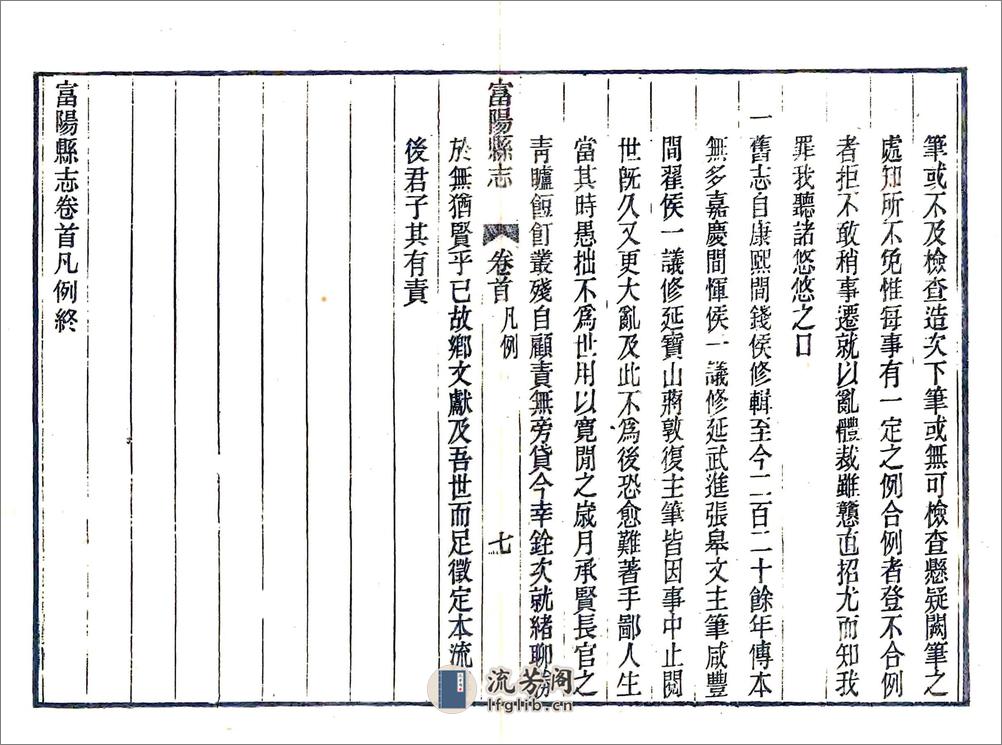 筆或不及檢查造次下筆或無可檢查懸疑闕筆之
處知所不免惟每事有一定之例合例者登不合例
者拒不敢稍事遷就以亂體裁雖戇直招尤而知我
罪我聽諸悠悠之口
一舊志自康熙間錢侯修輯至今二百二十餘年傳本
無多嘉慶間惲侯一議修延武進張皋文主筆咸豐
間翟侯一議修延寶山蔣敦復主筆皆因事中止閱
世旣久又更大亂及此不爲後恐愈難著手鄙人生
當其時愚拙不爲世用以寬閒之歲月承賢長官之
靑矑餖飣叢殘自顧責無旁貸今幸銓次就緒聊勝
富陽縣志 卷首 凡例 七
於無猶賢乎已故鄉文獻及吾世而足徵定本流
後君子其有責
富陽縣志卷首凡例終
流芳阁
lfglib.cn